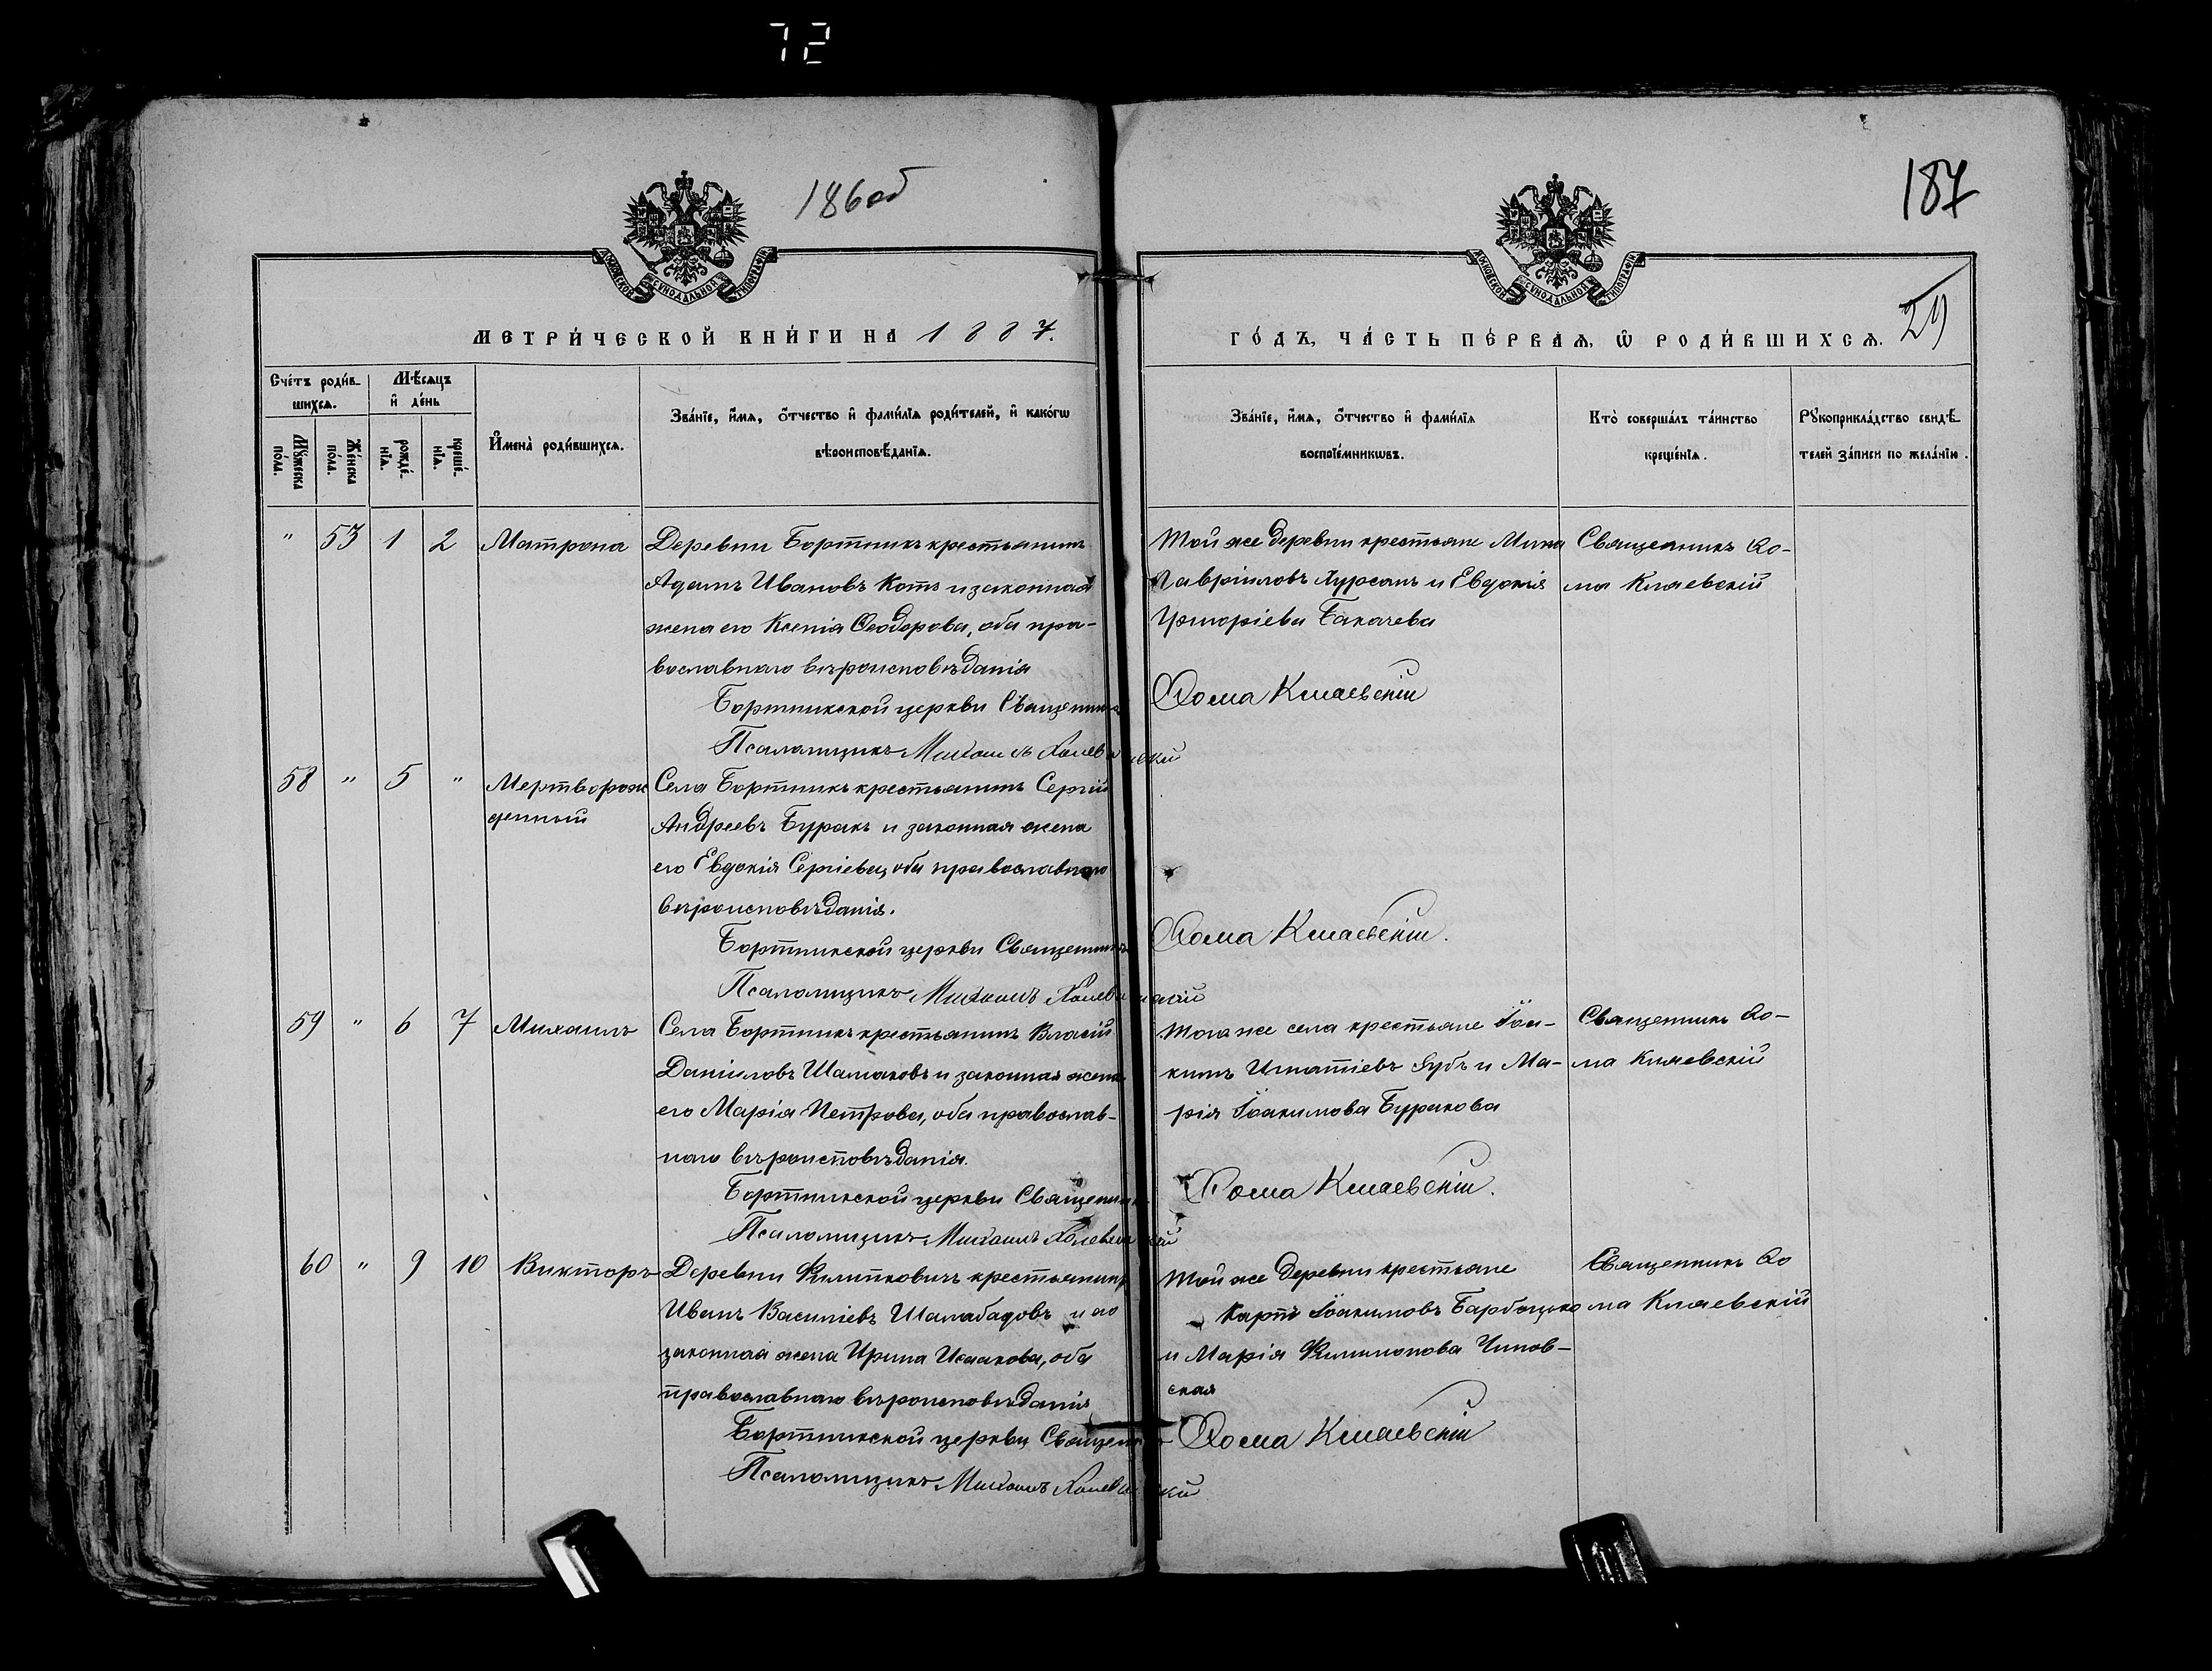 72
186об
187
29
МЕТРИ́ЧЕСКОЙ КНИ́ГИ НА 1887.
ГО́ДЪ, ЧА́СТЬ ПЕ́РВАѦ, Ѡ РОДИ́ВШИХСѦ.
МОСКОВСКОЙ СѴНОДАЛЬНОЙ ТИПОГРАФІИ
МОСКОВСКОЙ СѴНОДАЛЬНОЙ ТИПОГРАФІИ
Сче́тъ роди́в-
шихсѧ.
Мѣ́сѧцъ
и҆ де́нь
Мꙋ́жеска
по́ла.
Же́нска
по́ла.
рожде́-
нїѧ.
креще́-
нїѧ.
И҆мена̀ роди́вшихсѧ.
Зва́нїе, и҆́мѧ, ѻ҆́тчество и҆ фами́лїѧ роди́телей, и҆ како́гѡ
вѣроисповѣ́данїѧ.
Зва́нїе, и҆́мѧ, ѻ҆́тчество и҆ фами́лїѧ
воспрїе́мникѡвъ.
Кто̀ соверша́лъ та́инство
креще́нїѧ.
Рꙋкоприкла́дство свидѣ́-
телей за́писи по жела́нїю.
" 53 1 2 Матрона
Деревни Бортникъ крестьянинъ
Адамъ Ивановъ Котъ и законная
жена его Ксенія Ѳеодорова, оба пра-
вославнаго вѣроисповѣданія
Бортникской церкви Священникъ
Псаломщикъ Михаилъ
Той же деревни крестьяне Мина
Гавріиловъ Хурсанъ и Евдокія
Григоріева Бакачева
Ѳома Кмаевскій
Священникъ Ѳо-
ма Кмаевскій
58 " 5 " Мертворож
денный
Села Бортникъ крестьянинъ Сергій
Андреевъ Буракъ и законная жена
его Евдокія Сергіева, оба православнаго
вѣроисповѣданія.
Бортникской церкви Священникъ
Псаломщикъ Михаилъ
Ѳома Кмаевскій.
59 " 6 7 Михаилъ
Села Бортникъ крестьянинъ Власій
Даніиловъ Шамаковъ и законная жена
его Марія Петрова, оба православ-
наго вѣроисповѣданія.
Бортникской церкви Священникъ
Псаломщикъ Михаилъ
Того же села крестьяне Іоа-
кимъ Игнатіевъ Зубъ и Ма-
рія Іоакимова Буракова
Ѳома Кмаевскій.
Священникъ Ѳо-
ма Кмаевскій
60 " 9 10 Викторъ
Деревни Филипковичъ крестьянинъ
Иванъ Василіевъ Шалабадовъ и его
законная жена Ирина Исаакова, оба
православнаго вѣроисповѣданія
Бортникской церкви Священникъ
Псаломщикъ Михаилъ
Той же деревни крестьяне
Карпъ Іоакимовъ
и Марія Филимонова Чинов-
ская
Ѳома Кмаевскій
Священникъ Ѳо
ма Кмаевскій